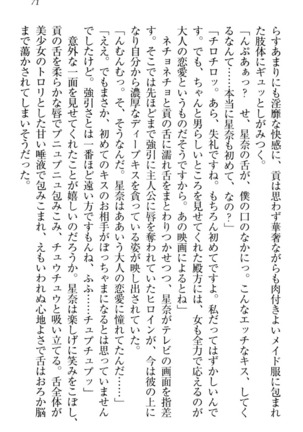 71
らすあまりにも淫靡な快感に、貢は思わず華奢ながらも肉付きよいメイド服に包まれ
た肢体にギュッとしがみつく。
「んぷあぁっ？　せ、星奈の舌が、僕の口のなかにっ。こんなエッチなキス、してく
るなんて……本当に星奈も初めて、なの？」
「チロチロッ。あら、失礼ですね。もちろん初めてですよ。私だってはずかしいんで
す。でも、ちゃんと男らしいところを見せてくれた殿方には、女も全力で応えるのが
大人の恋愛というものだそうですから。あの映画によるとね」
ネチョネチョと貢の舌に濡れ舌をまとわりつかせつつ、星奈がテレビの画面を指差
す。そこでは先ほどまで強引に主人公に唇を奪われていたヒロインが、今は彼の上に
なり自分から濃厚なディープキスを貪っている姿が映し出されていた。
「んむんむっ。そ、そうなんだ。星奈はああいう大人の恋愛に憧れてたんだ……」
「ええ。でもまさか、初めてのキスのお相手がぼっちゃまになるとは思っていません
でしたよ。強引さとは一番ほど遠い方ですもんね、ふふ……チュプチュプッ」
意外な一面を見せてくれたことが嬉しいのか、星奈は楽しげに笑みをこぼし、
貢の舌を柔らかな唇でプニュプニュ包みこみ、チュウチュウと吸い立てる。舌全体が
美少女のトロリとした甘い唾液で包みこまれ、えもいわれぬ心地よさで舌はおろか脳
まで蕩かされてしまいそうだった。